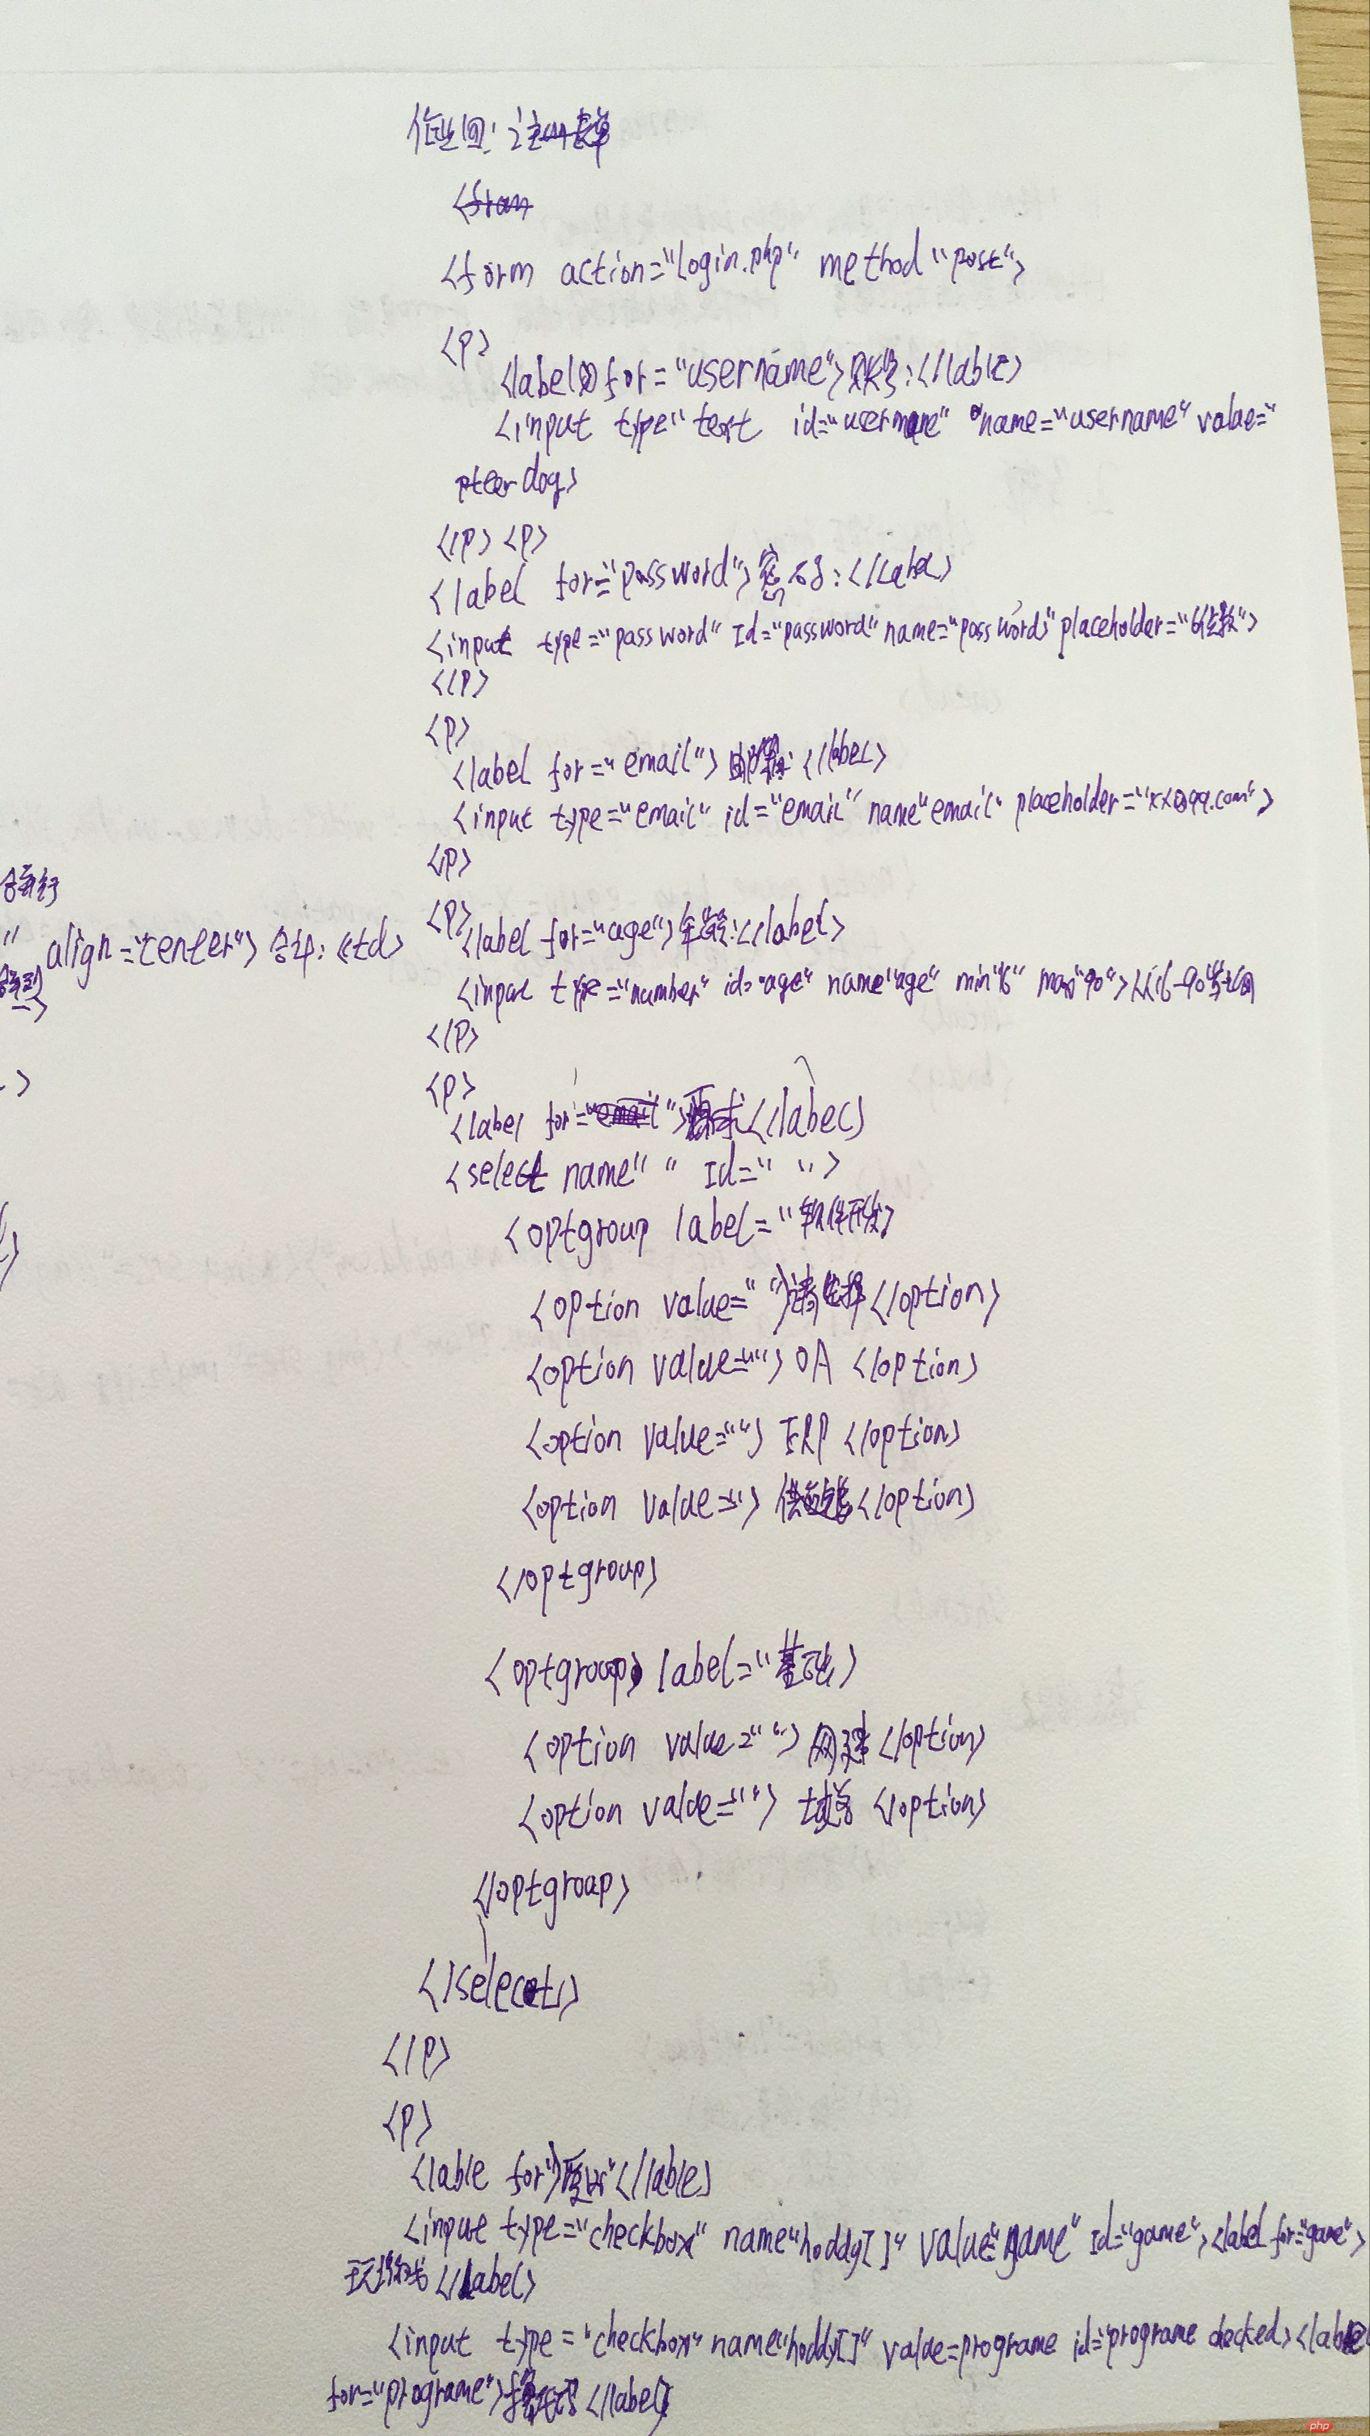 作业四:
<form action="login.php" method "post">
<p>
<label for="username">账号:</lable>
<input type" text id="username" name="username" value="
pteerdog>
</p> <p>
<label for="password">密码:</label>
<input type="password" Id="password" name="password" placeholder="6位数">
</p>
<p>
<label for="email">邮箱:</label>
<input type="email" id="email" name"email" placeholder="xx@qq.com">
<p>
<p>
<label for="age">年龄:</label>
<input type="number" id="age" name"age" min"16" max"90">从16-90
</p>
<p>
<label for="">要求</label>
<select name" " Id=" ">
<optgroup label="软件开发>
<option value=" ">请选择</option>
<option value="">OA</option>
<option value="">ERP</option>
<option value=">供应链</option>
</optgroup>
<optgroup label="基础>
<option value="">网建</option>
<option value=""></option>
</optgroup>
</select>
</p>
<p>
<lable for">爱好"</lable>
<input type="checkbox" name"hoddy[]" value="game" Id="game"><label for="game">
玩游戏</label>
<input type="checkbox" name"hoddy[]" value=programe id="programe checked><lable
for="programe">撸代码</label>
合并行
" align="center">合计:</td>
-->